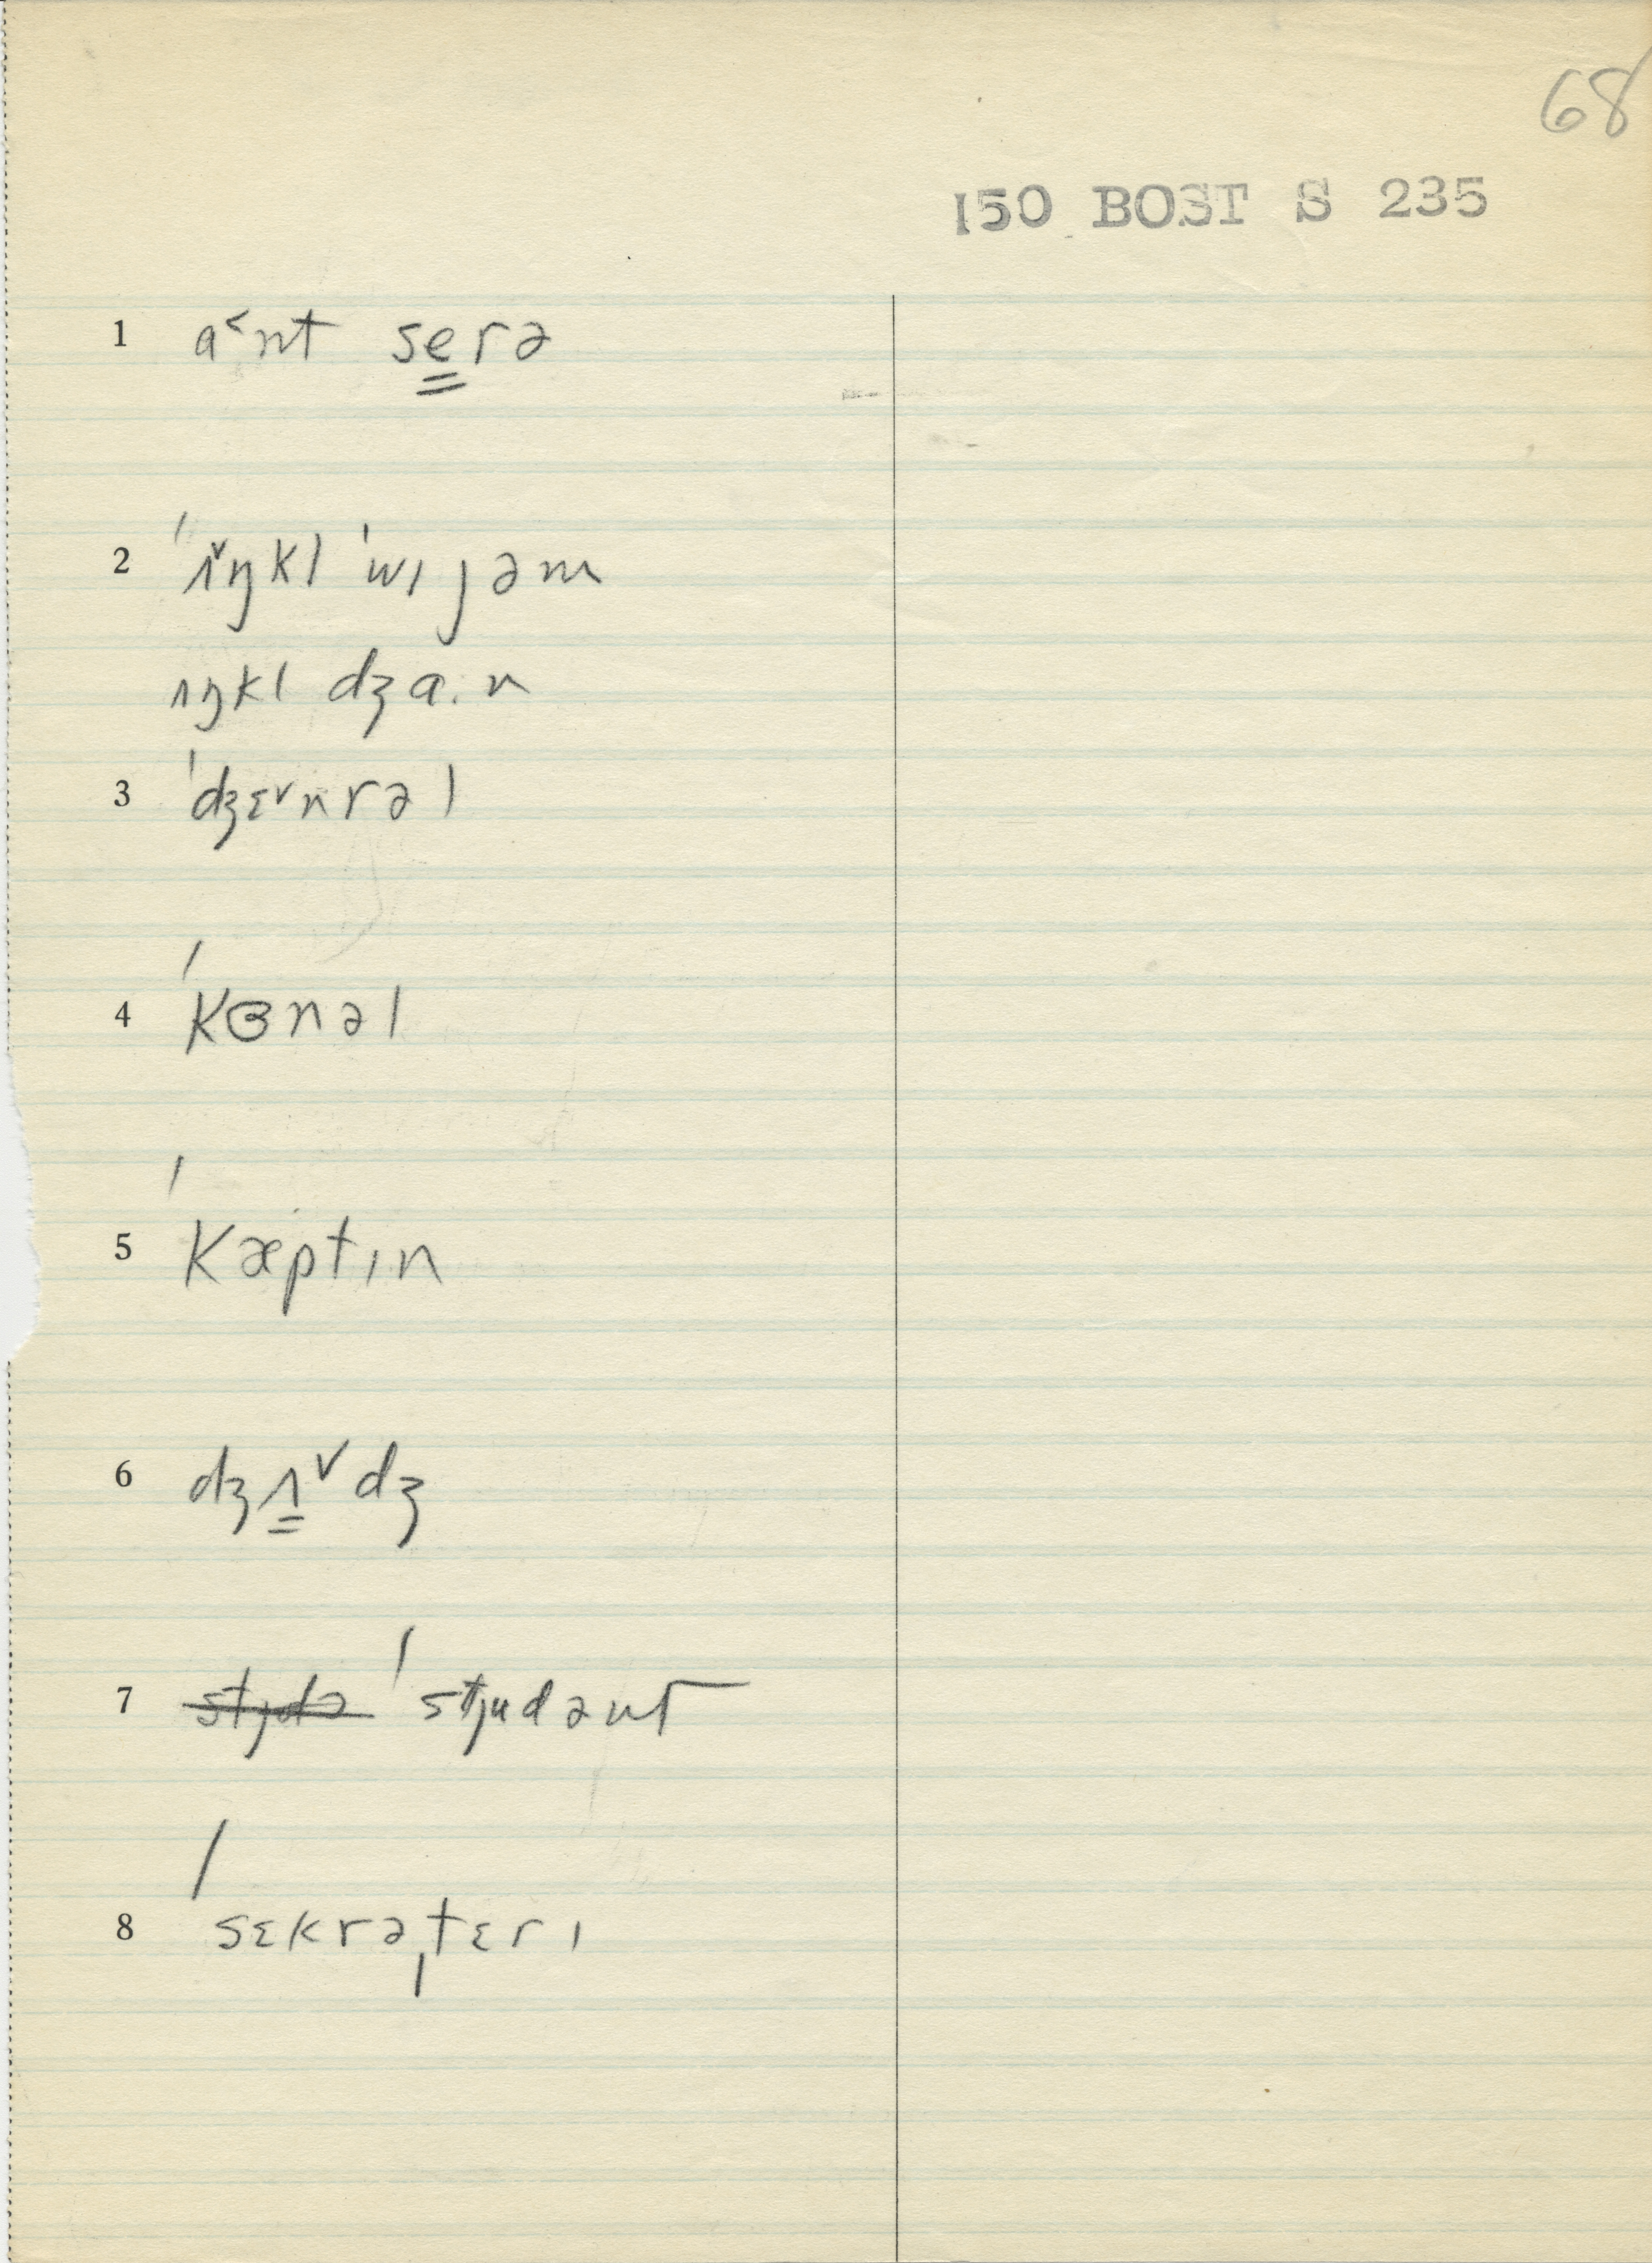 68
150 BOST S 235
1 a˂nt se̳rə
2 ˈʌ˅ŋkl ˈwɪjəm
ʌŋkl dʒa.n
3 ˈdʒɛ˅nrəl
4 ˈkɞnəl
5 ˈkæptɪn
6 dʒʌ̳˅dʒ
7 ~~stjdə~~ ˈstjudənt
8 ˈsɛkrəˌtɛrɪ